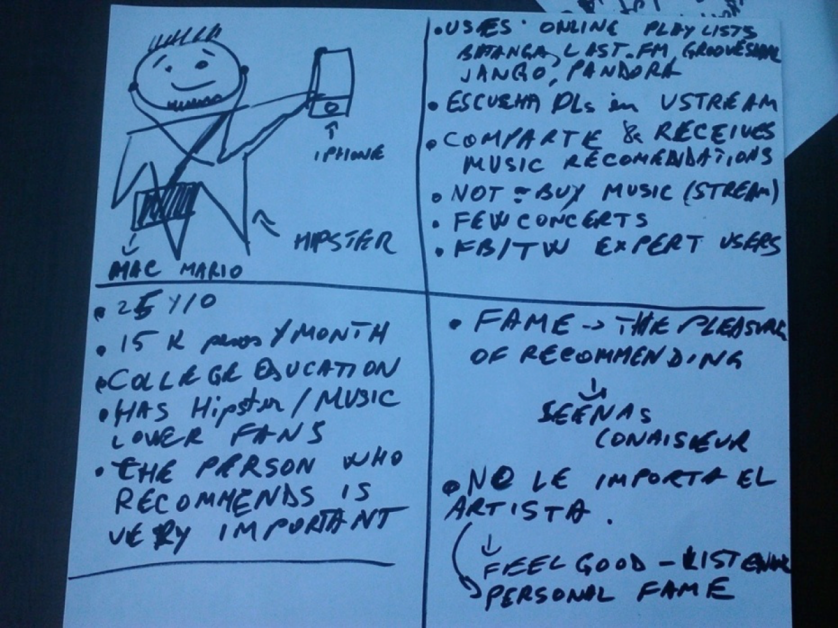 IPHONE
HIPSTER
MAC MARIO
• USES ONLINE PLAYLISTS
BATANGA, LAST.FM, GROOVESHARK
JANGO, PANDORA
• ESCUCHA DLs in USTREAM
• COMPARTE & RECEIVES
MUSIC RECOMENDATIONS
• NOT = BUY MUSIC (STREAM)
• FEW CONCERTS
• FB/TW EXPERT USERS
• 25 Y/O
• 15 K pesos / MONTH
• COLLEGE EDUCATION
• HAS Hipster / MUSIC
LOVER FANS
• THE PERSON WHO
RECOMMENDS IS
VERY IMPORTANT
• FAME → THE PLEASURE
OF RECOMMENDING
↓
SEEN AS
CONAISIEUR
• NO LE IMPORTA EL
ARTISTA.
↓
FEEL GOOD - LISTENER
PERSONAL FAME